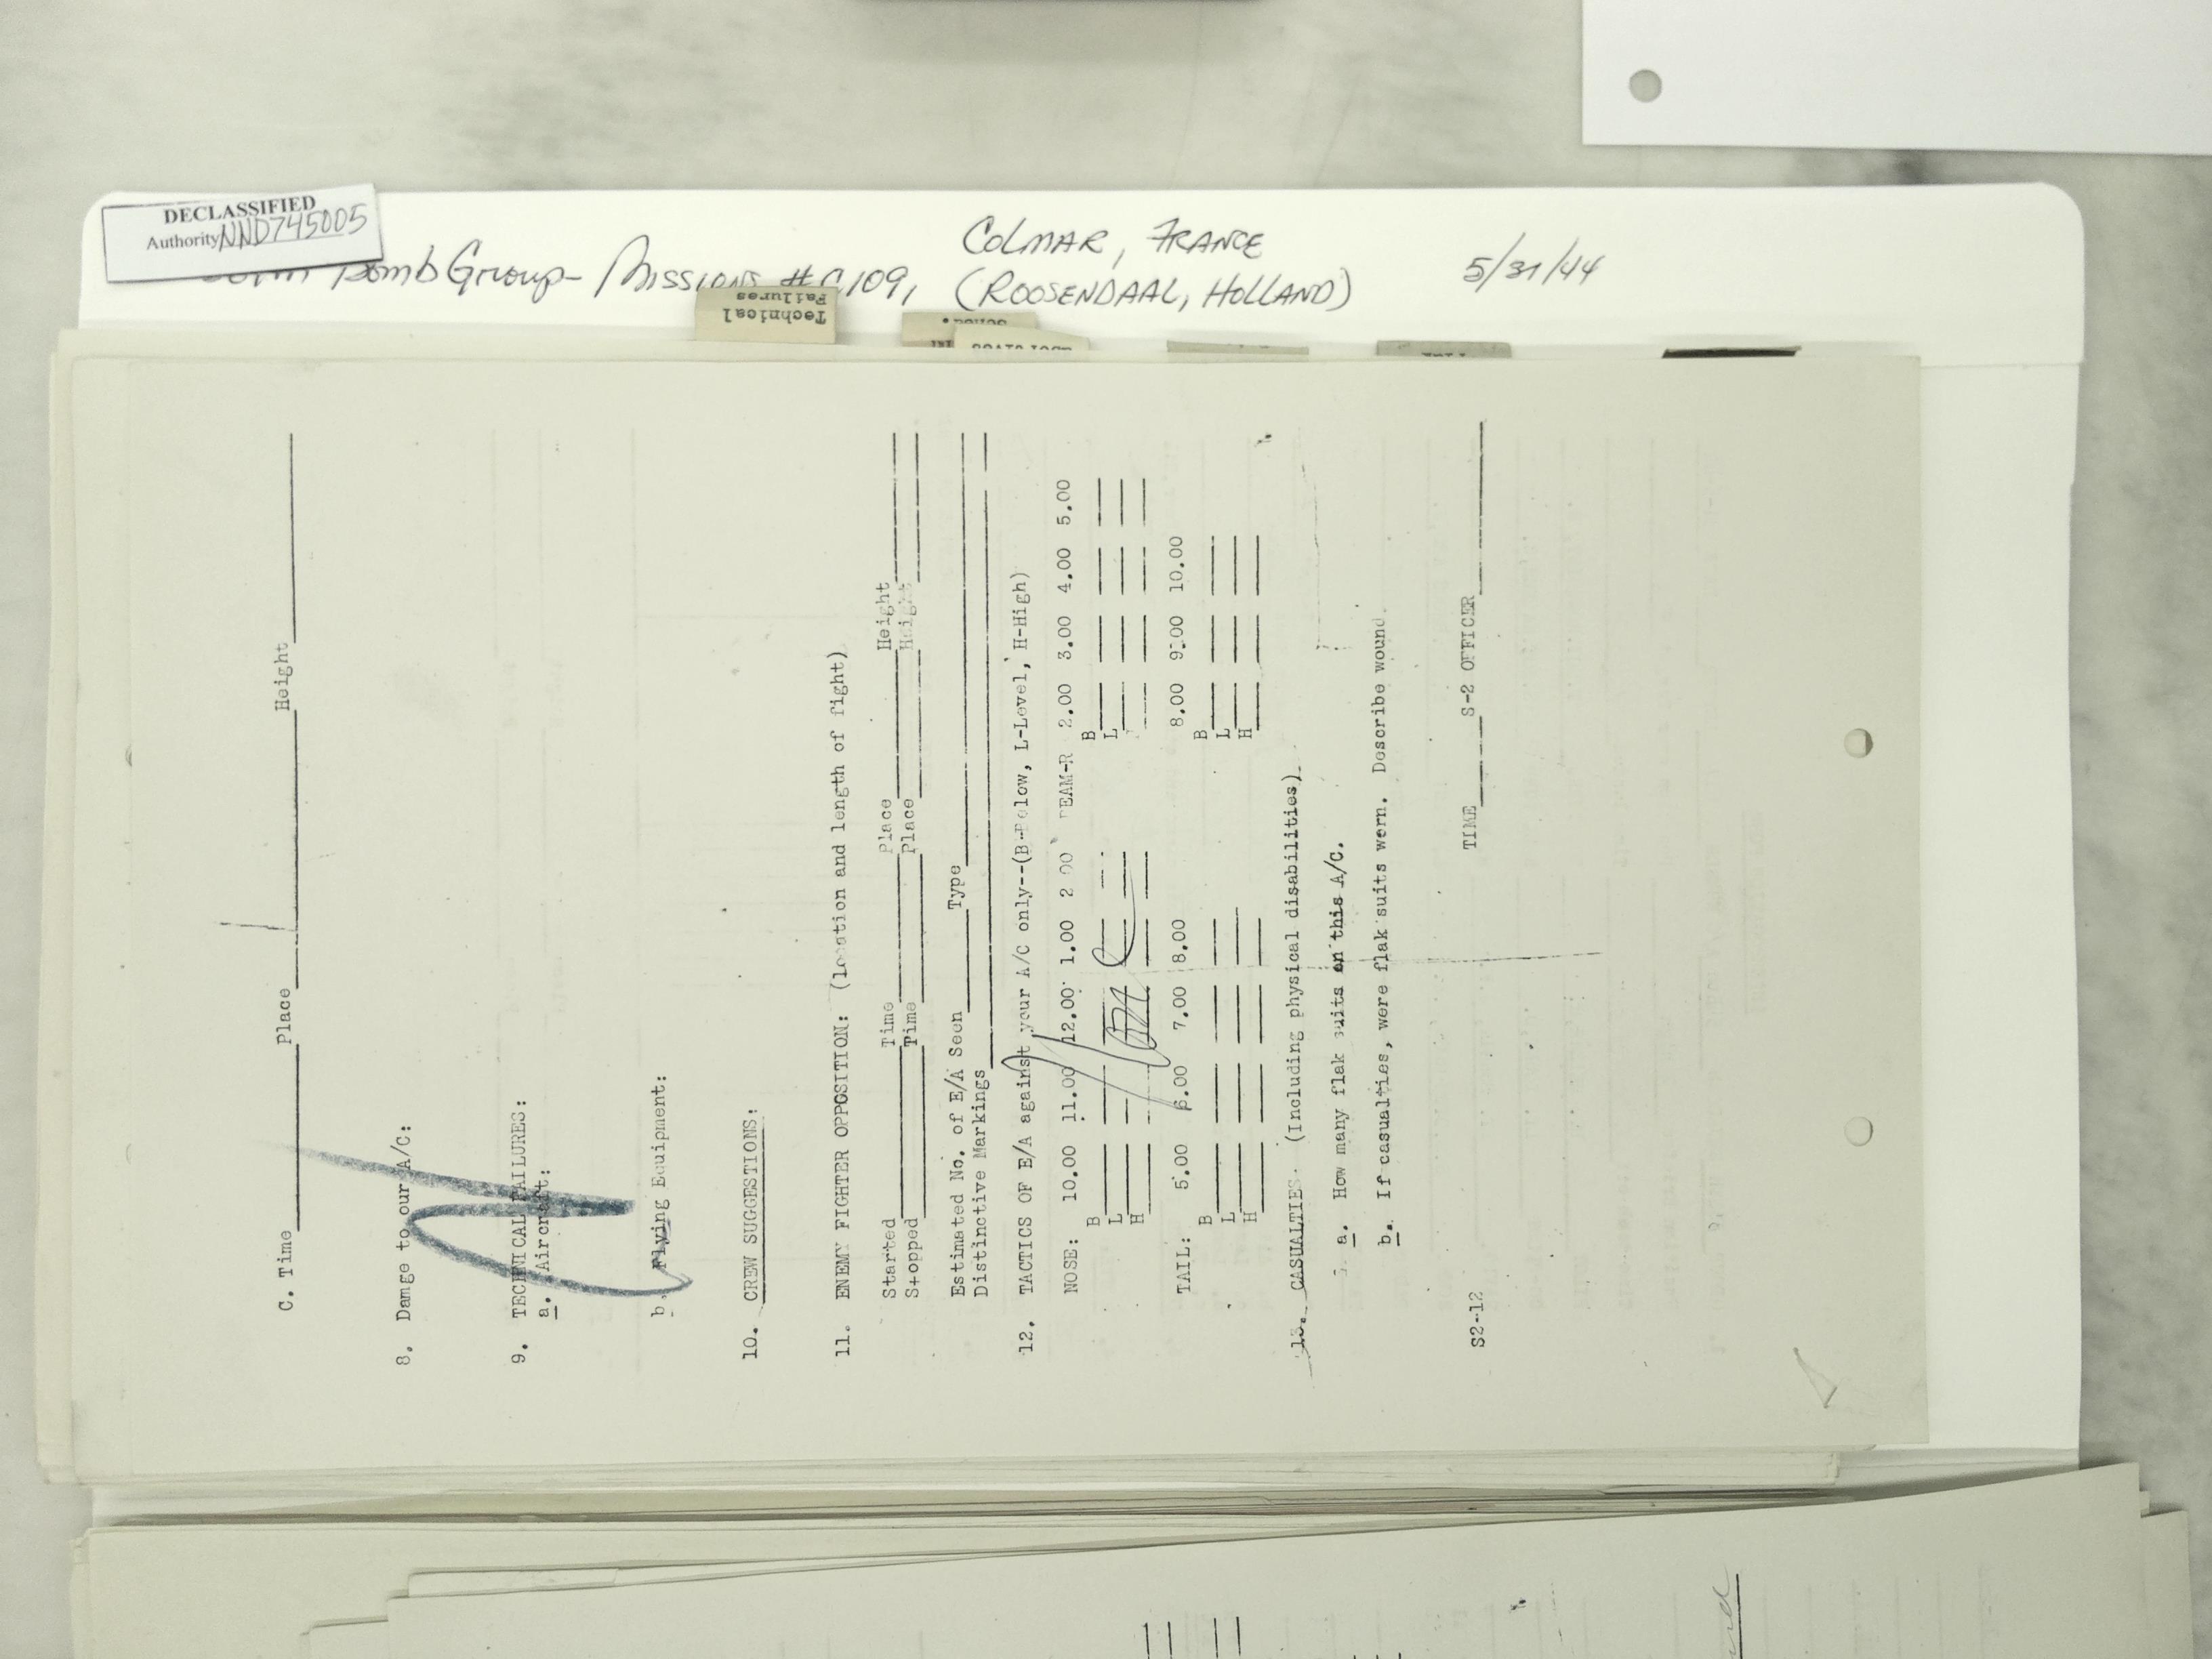 DECLASSIFIED
Authority NND745005
Bomb Group - Missions #C109,
COLMAR, FRANCE
(ROOSENDAAL, HOLLAND)
5/31/44
Technical
Failures
Sched.
C. Time Place Height
8. Damage to our A/C:
9. TECHNICAL FAILURES:
a. Aircraft:
b. Flying Equipment:
10. CREW SUGGESTIONS:
11. ENEMY FIGHTER OPPOSITION: (Location and length of fight)
Started Time Place Height
Stopped Time Place Height
Estimated No. of E/A Seen Type
Distinctive Markings
12. TACTICS OF E/A against your A/C only--(B-Below, L-Level, H-High)
NOSE: 10.00 11.00 12.00 1.00 2 00 BEAM-R 2.00 3.00 4.00 5.00
B B
L L
H
TAIL: 5.00 6.00 7.00 8.00 8.00 9.00 10.00
B B
L L
H H
13. CASUALTIES. (Including physical disabilities)
a. How many flak suits on this A/C.
b. If casualties, were flak suits worn. Describe wound.
TIME S-2 OFFICER
S2-12